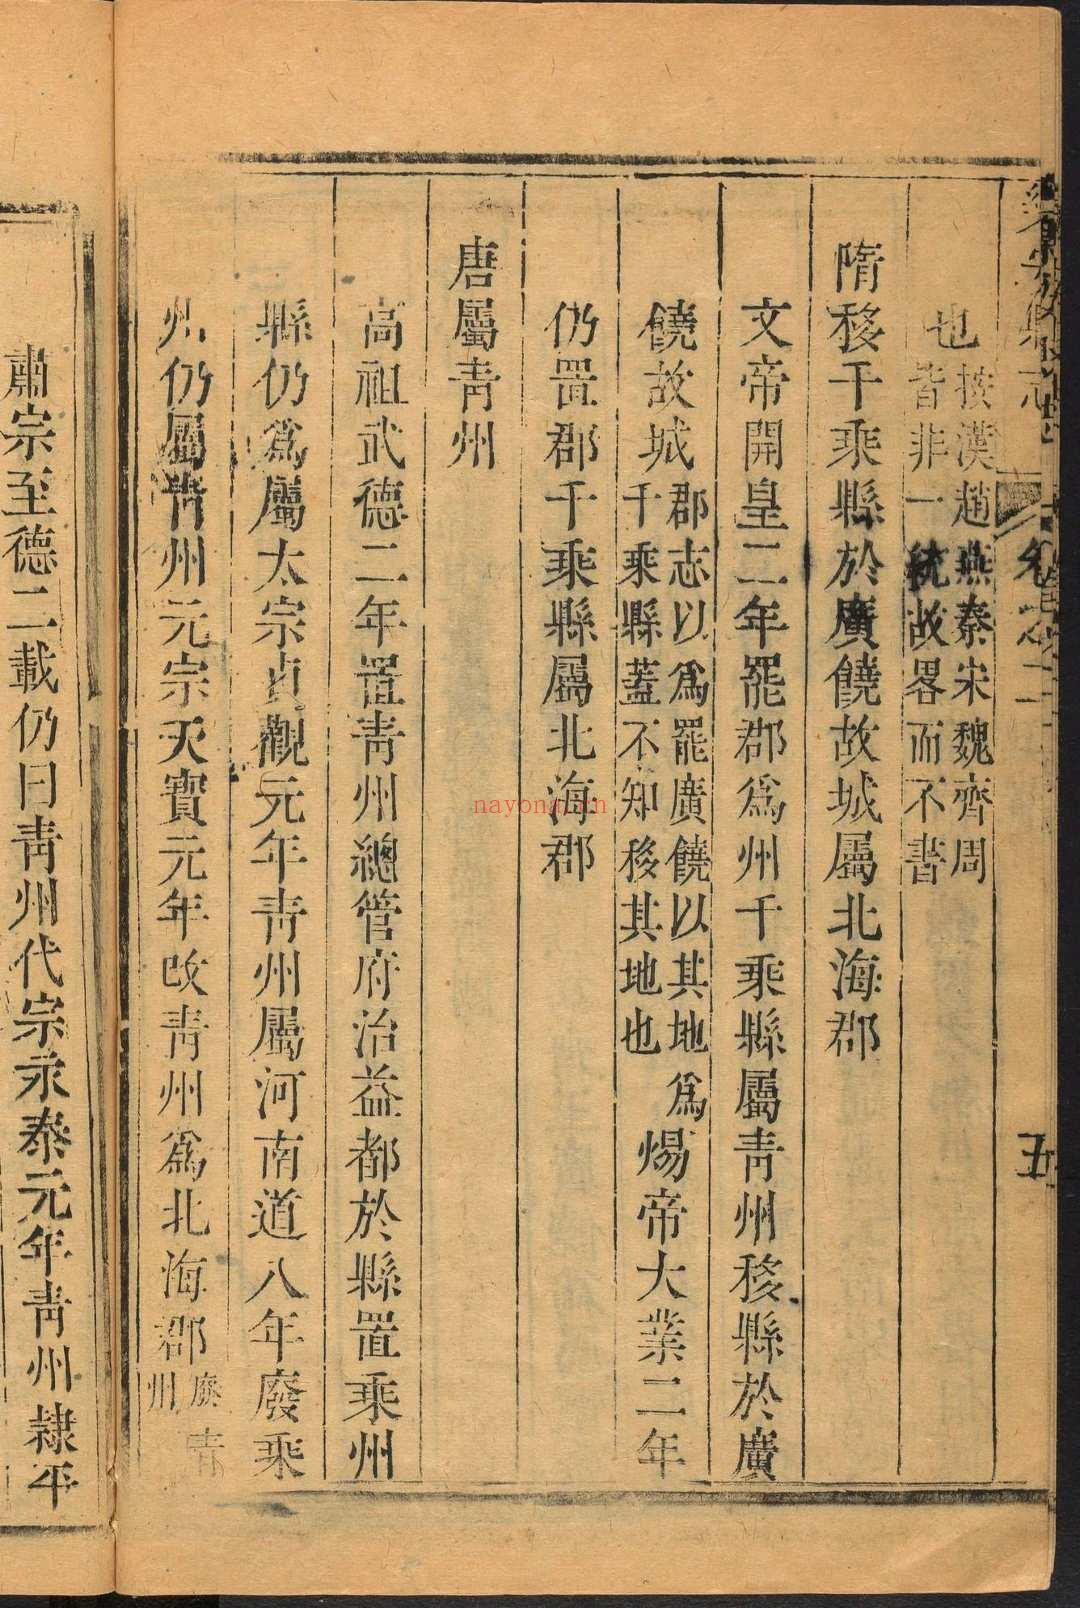 樂安縣志 卷之一 五
也按漢趙燕秦宋魏齊周
皆非一統故畧而不書
隋移千乘縣於廣饒故城屬北海郡
文帝開皇二年罷郡爲州千乘縣屬青州移縣於廣
饒故城郡志以爲罷廣饒以其地爲
千乘縣蓋不知移其地也煬帝大業二年
仍置郡千乘縣屬北海郡
唐屬青州
高祖武德二年置青州總管府治益都於縣置乘州
縣仍爲屬太宗貞觀元年青州屬河南道八年廢乘
州仍屬青州元宗天寶元年改青州爲北海郡廢青
州
肅宗至德二載仍曰青州代宗永泰元年青州隸平
nayona.cn